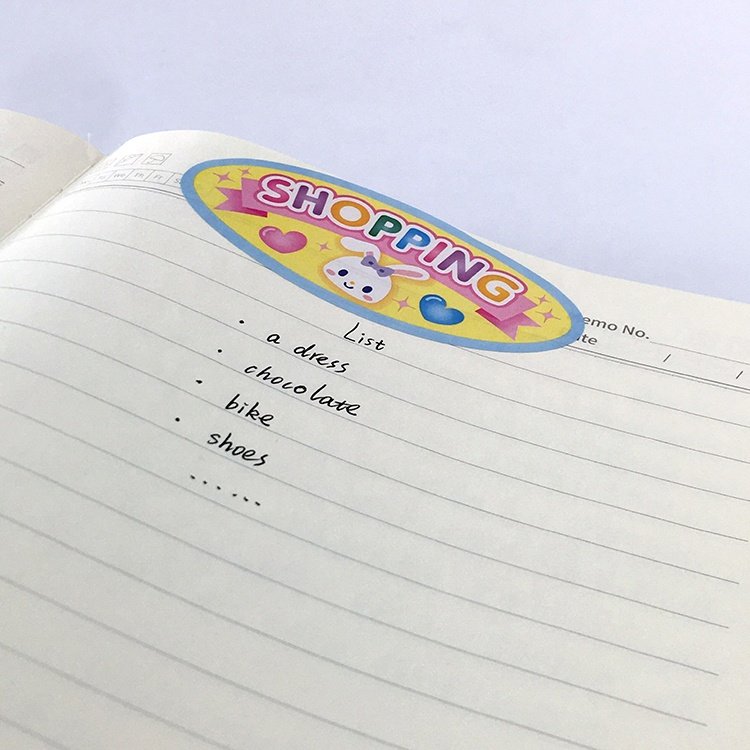 We Th Fr
SHOPPING
emo No.
te
List
· a dress
· chocolate
· bike
· shoes
......